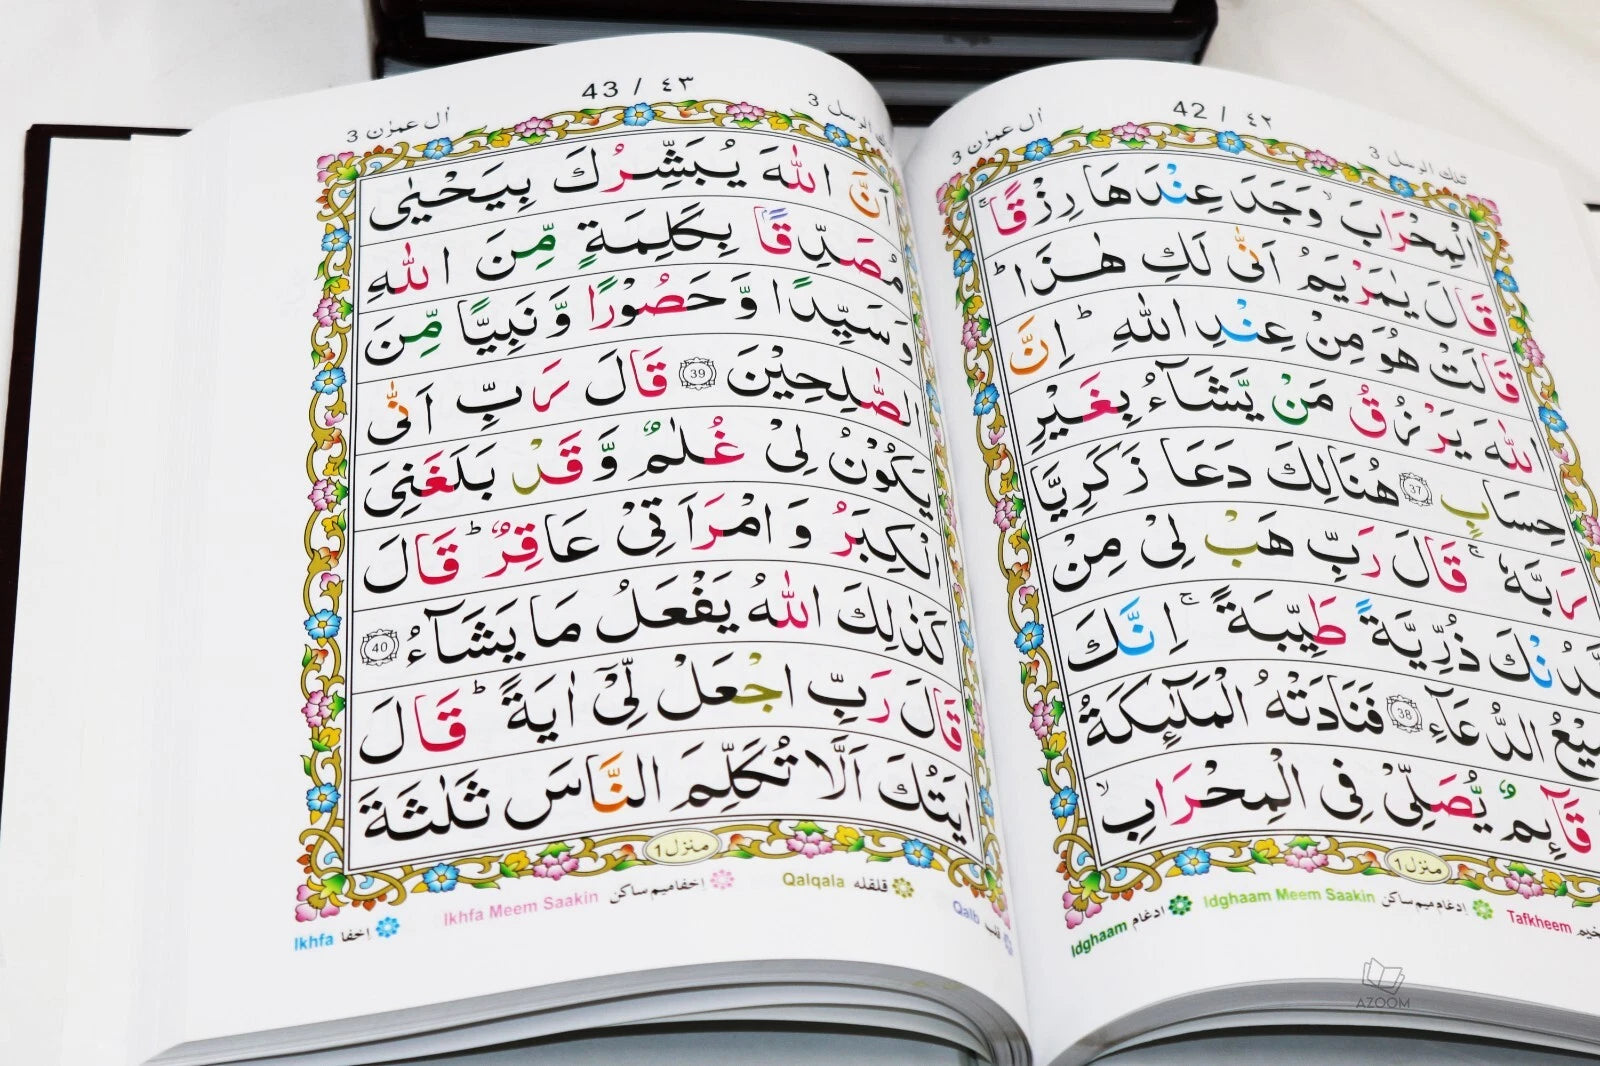 42 / ٤٢
تلك الرسل 3
اٰل عمرٰن 3
الْمِحْرَابَ ۙ وَجَدَ عِنْدَهَا رِزْقًا ۚ
قَالَ يٰمَرْيَمُ اَنّٰى لَكِ هٰذَا ؕ
قَالَتْ هُوَ مِنْ عِنْدِ اللّٰهِ ؕ اِنَّ
اللّٰهَ يَرْزُقُ مَنْ يَّشَآءُ بِغَيْرِ
حِسَابٍ 37 هُنَالِكَ دَعَا زَكَرِيَّا
رَبَّهٗ ۚ قَالَ رَبِّ هَبْ لِىْ مِنْ
لَّدُنْكَ ذُرِّيَّةً طَيِّبَةً ۚ اِنَّكَ
الدُّعَآءِ 38 فَنَادَتْهُ الْمَلٰٓئِكَةُ
قَآئِمٌ يُّصَلِّىْ فِى الْمِحْرَابِ ۙ
منزل 1
Idghaam ادغام
Idghaam Meem Saakin اِدغام میم ساکن
Tafkheem
43 / ٤٣
3
اٰل عمرٰن 3
اَنَّ اللّٰهَ يُبَشِّرُكَ بِيَحْيٰى
مُصَدِّقًۢا بِكَلِمَةٍ مِّنَ اللّٰهِ
وَسَيِّدًا وَّحَصُوْرًا وَّنَبِيًّا مِّنَ
الصّٰلِحِيْنَ 39 قَالَ رَبِّ اَنّٰى
يَكُوْنُ لِىْ غُلٰمٌ وَّقَدْ بَلَغَنِىَ
الْكِبَرُ وَامْرَاَتِىْ عَاقِرٌ ؕ قَالَ
كَذٰلِكَ اللّٰهُ يَفْعَلُ مَا يَشَآءُ 40
قَالَ رَبِّ اجْعَلْ لِّىْٓ اٰيَةً ؕ قَالَ
اٰيَتُكَ اَلَّا تُكَلِّمَ النَّاسَ ثَلٰثَةَ
منزل 1
Ikhfa اِخفا
Ikhfa Meem Saakin اِخفا میم ساکن
Qalqala قلقله
Qalb قلب
AZOOM